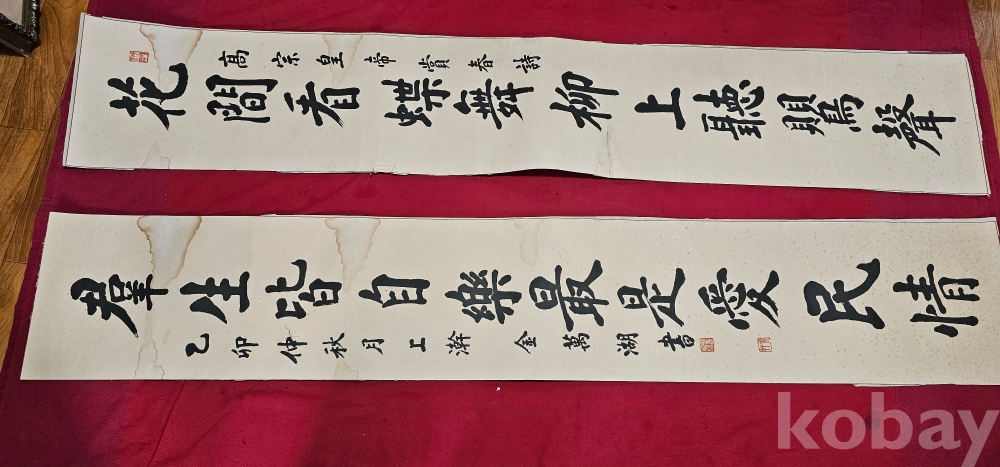 高宗皇帝賞春詩
花間看蝶舞柳上聽鸎聲
羣生皆自樂最是愛民情
乙卯仲秋月上澣 金萬湖書
kobay